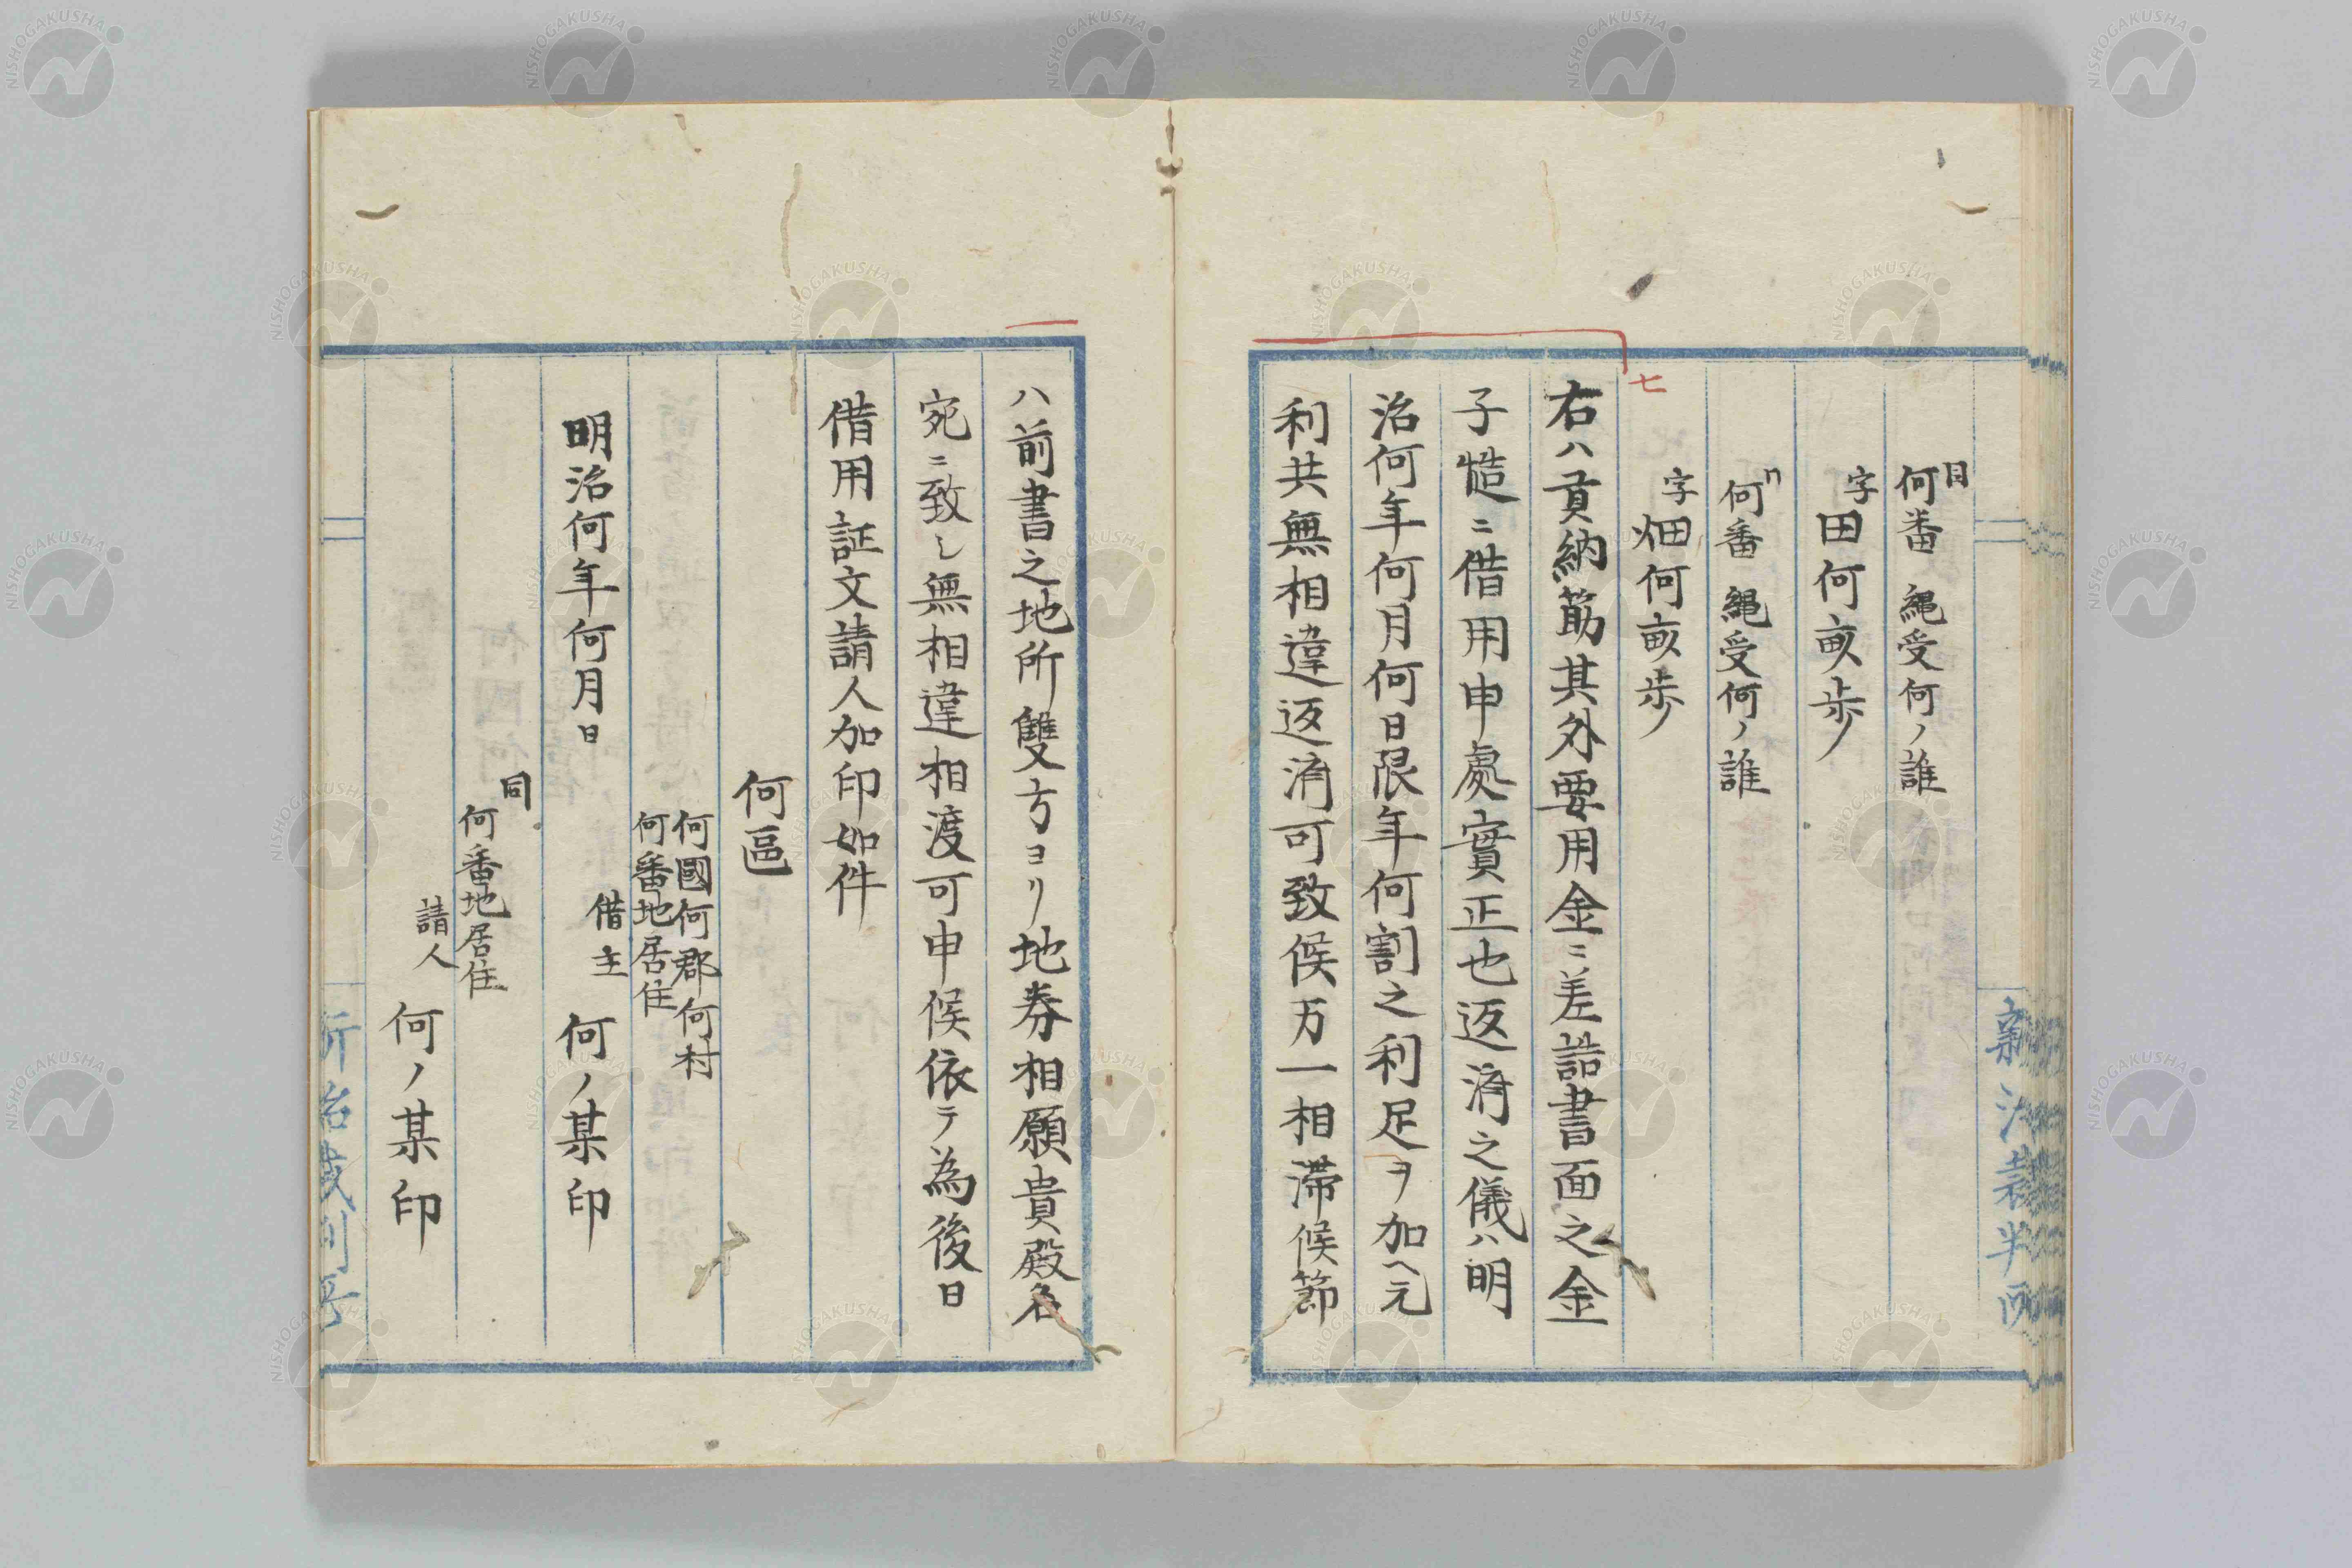 同
何番 繩受何ノ誰
字
田何畝歩
〃
何番 繩受何ノ誰
字
畑何畝歩
七
右ハ貢納筋其外要用金ニ差詰書面之金
子慥ニ借用申處實正也返済之儀ハ明
治何年何月何日限年何割之利足ヲ加ヘ元
利共無相違返済可致候万一相滞候節
ハ前書之地所雙方ヨリ地券相願貴殿名
宛ニ致シ無相違相渡可申候依テ為後日
借用証文請人加印如件
何區
何國何郡何村
何番地居住
借主 何ノ某印
明治何年何月日
同
何番地居住
請人 何ノ某印
新治裁判所
NISHOGAKUSHA